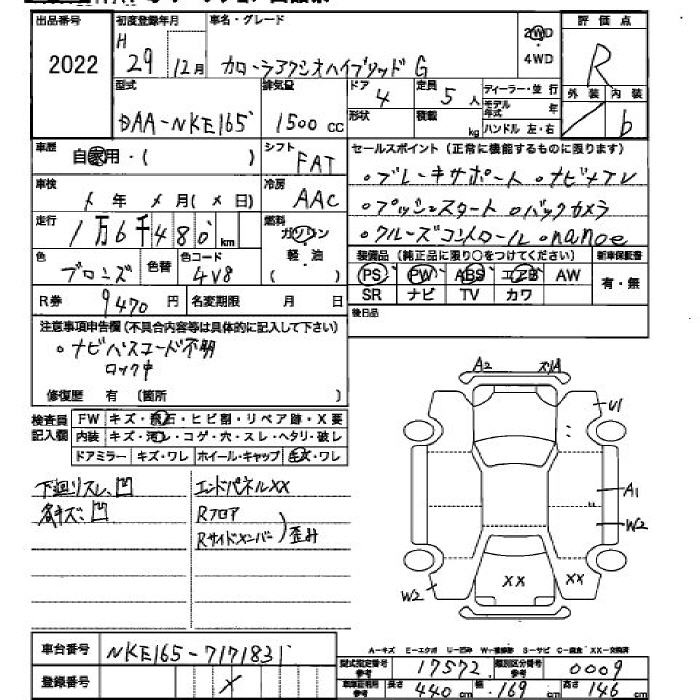 出品番号 2022
初度登録年月 H 29年 12月
車名・グレード カローラアクシオハイブリッド G
2WD
4WD
評価点 R
外装 / 内装 b
型式 DAA-NKE165
排気量 1500 CC
ドア 4
形状
定員 5 人
積載 kg
ディーラー・並行
モデル年式 年
ハンドル 左・右
車歴 自家用・( )
シフト FAT
セールスポイント (正常に機能するものに限ります)
。ブレーキサポート 。ナビナアレ
。プッシュスタート 。バックカメラ
。クルーズコントロール 。nanoe
車検 年 月( 日)
冷房 AAC
走行 1万6千480 km
燃料 ガソリン・軽・油 ( )
色 ブロンズ
色替
色コード 4V8
装備品 (純正品に限り○をつけてください)
新車保証書
PS PW ABS エアB AW
SR ナビ TV カワ
有・無
R券 9470 円
名変期限 月 日
後日品
注意事項申告欄 (不具合内容等は具体的に記入して下さい)
。ナビパスコード不明
ロック中
修復歴 有 (箇所 )
検査員記入欄
FW キズ・飛石・ヒビ割・リペア跡・X要
内装 キズ・汚レ・コゲ・穴・スレ・ヘタリ・破レ
ドアミラー キズ・ワレ ホイール・キャップ キズ・ワレ
下廻リスレ、凹
各キズ、凹
エンドパネルXX
Rフロア
Rサイドメンバー 歪み
A2
U1
A1
W2
XX
XX
W2
車台番号 NKE165-7171831
登録番号
A-キズ E-エクボ U-凹み W-補修跡 S-サビ C-腐食 XX-交換済
型式指定番号 参考 17572
類別区分番号 参考 0009
車庫証明用 参考 長さ 440 cm 幅 169 cm 高さ 146 cm